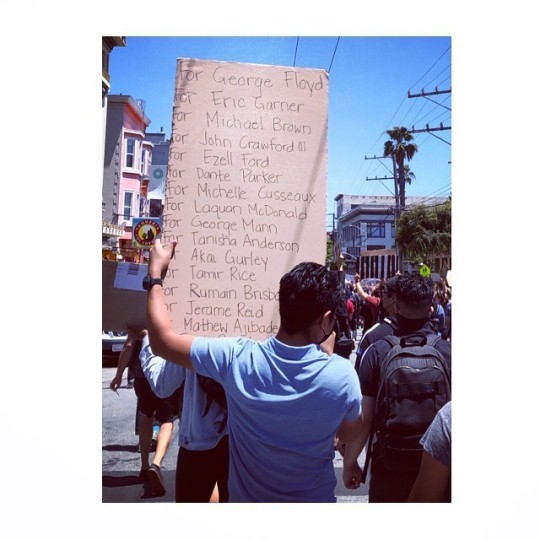 For George Floyd
For Eric Garner
For Michael Brown
For John Crawford III
For Ezell Ford
For Dante Parker
For Michelle Cusseaux
For Laquan McDonald
For George Mann
For Tanisha Anderson
Akai Gurley
For Tamir Rice
For Rumain Brisbo
or Jerame Reid
Mathew Ajibade